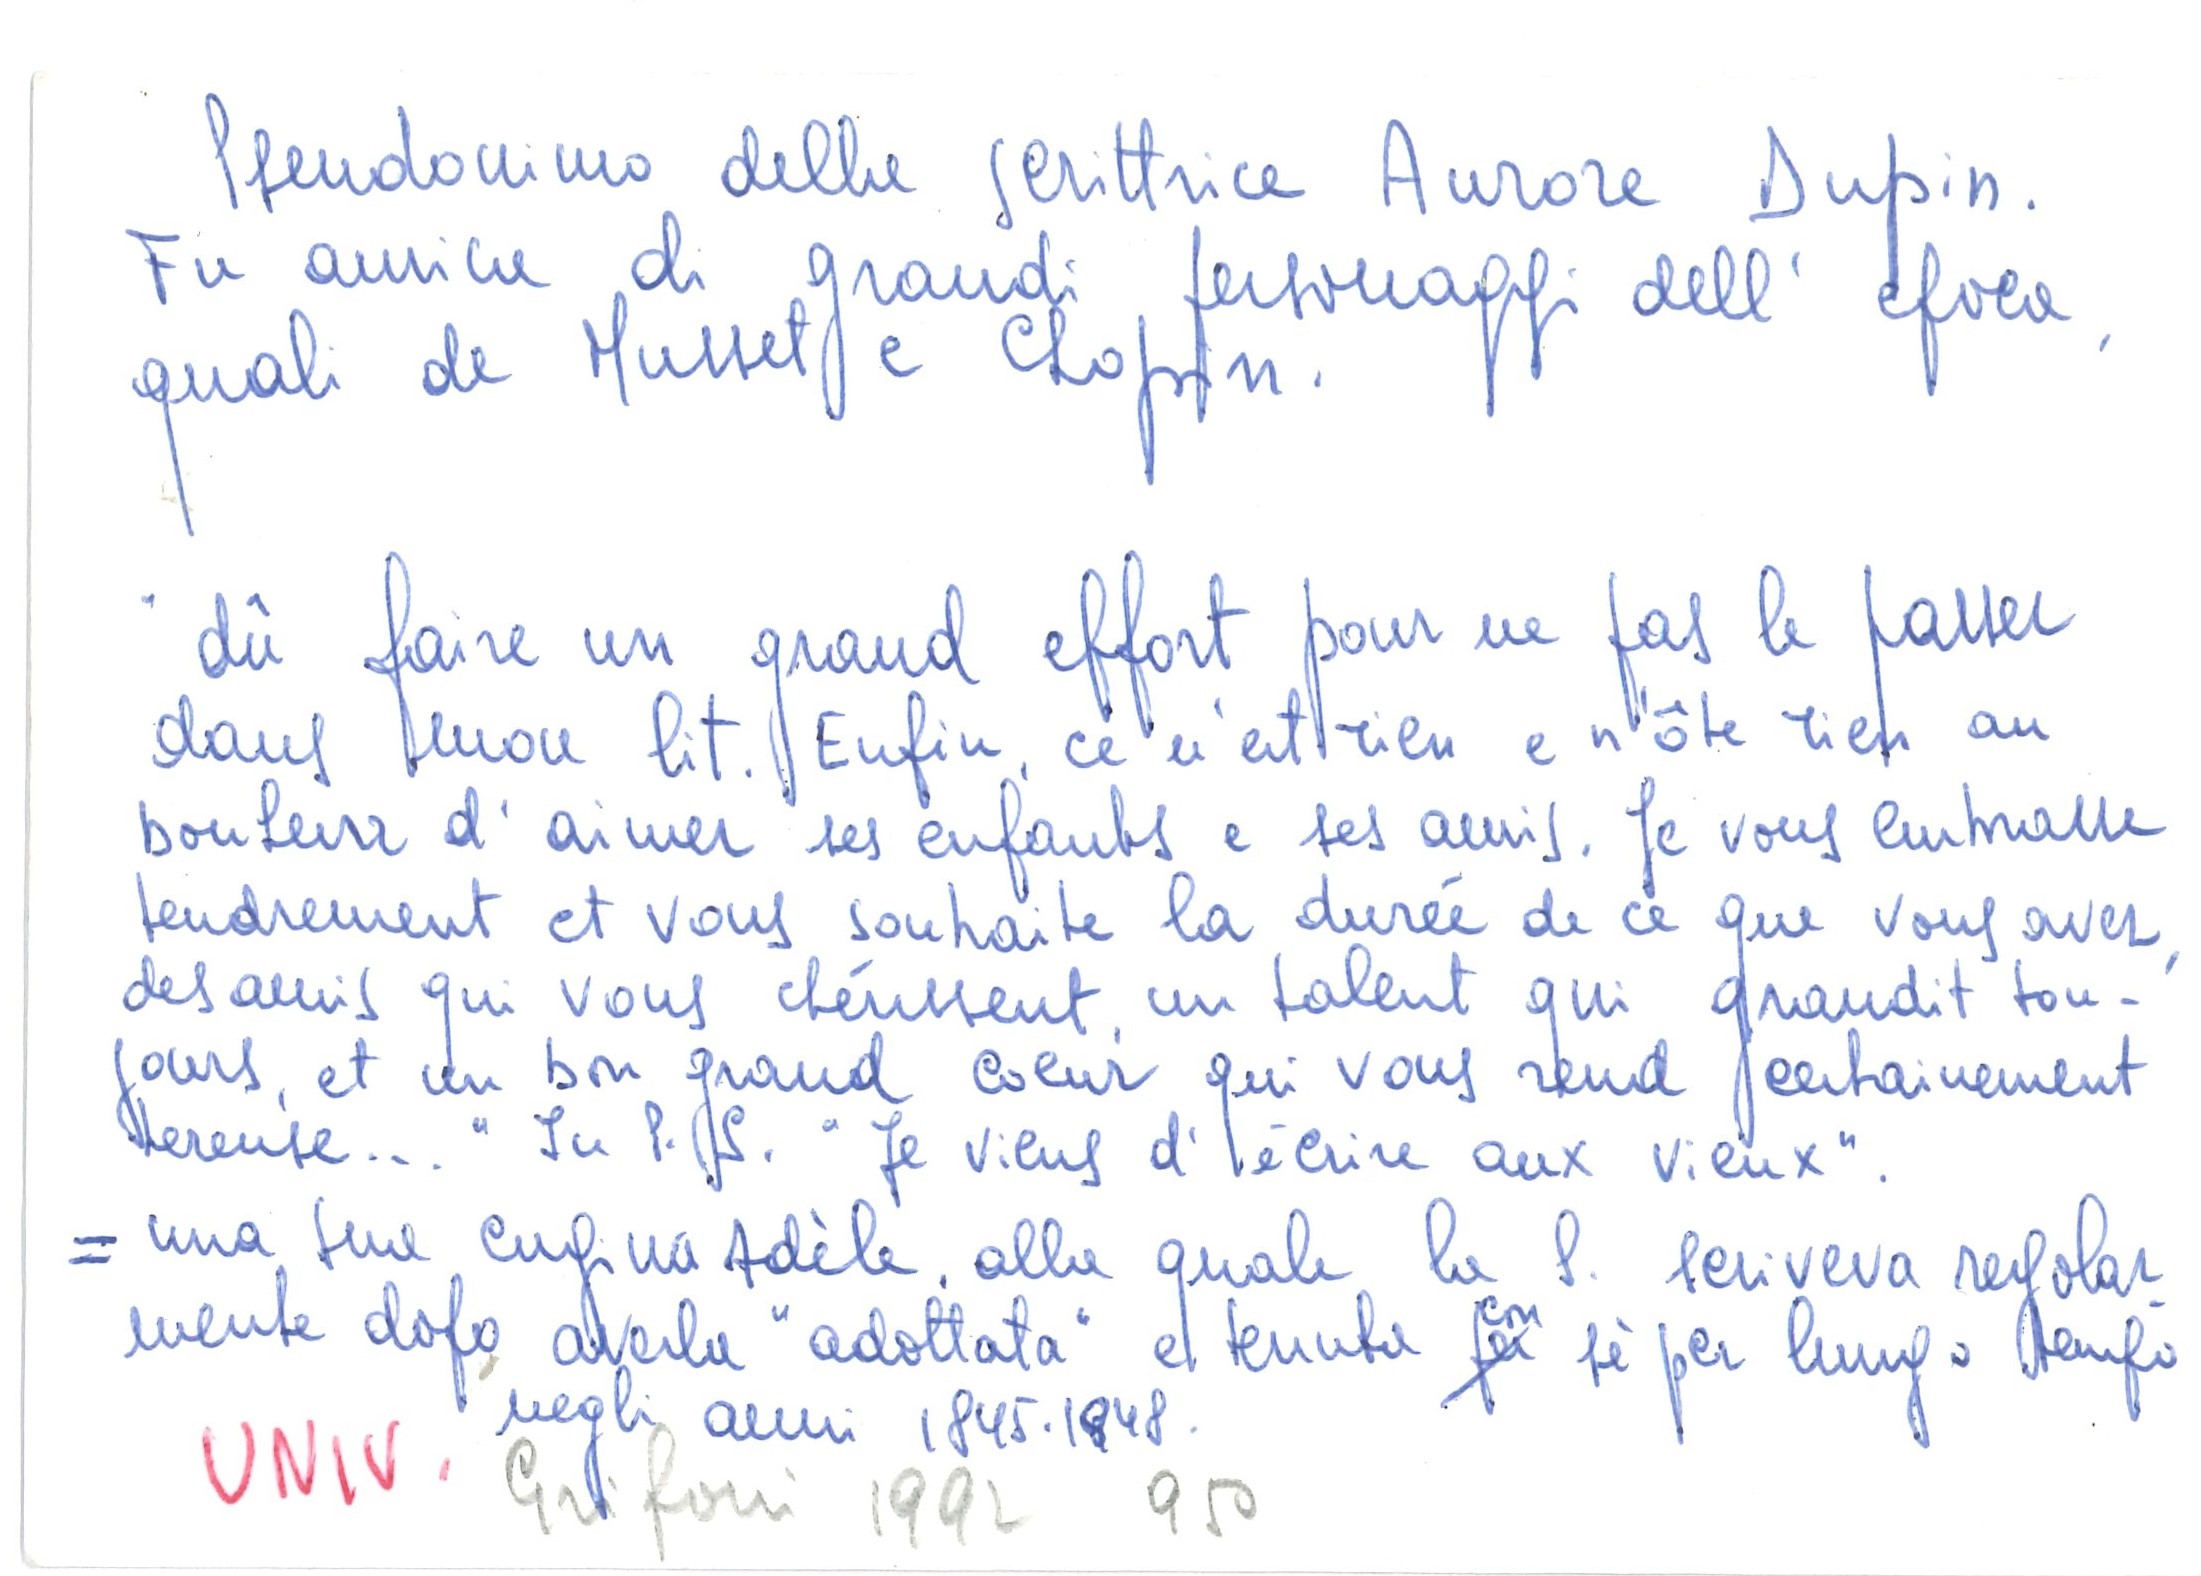 Pseudonimo della scrittrice Aurore Dupin.
Fu amica di grandi personaggi dell' epoca,
quali de Musset e Chopin.
"dû faire un grand effort pour ne pas le passer
dans mon lit. Enfin, ce n'est rien e n'ôte rien au
bonheur d'aimer ses enfants e ses amis. Je vous embrasse
tendrement et vous souhaite la durée de ce que vous avez,
des amis qui vous chérissent, un talent qui grandit tou-
jours, et un bon grand coeur qui vous rend certainement
hereuse..." In P.S. "Je viens d'écrire aux vieux".
= una sua cugina Adèle, alla quale la S. scriveva regolar-
mente dopo averla "adottata" e tenuta con sè per lungo tempo
negli anni 1845-1848.
UNIV. Grifoni 1992 950